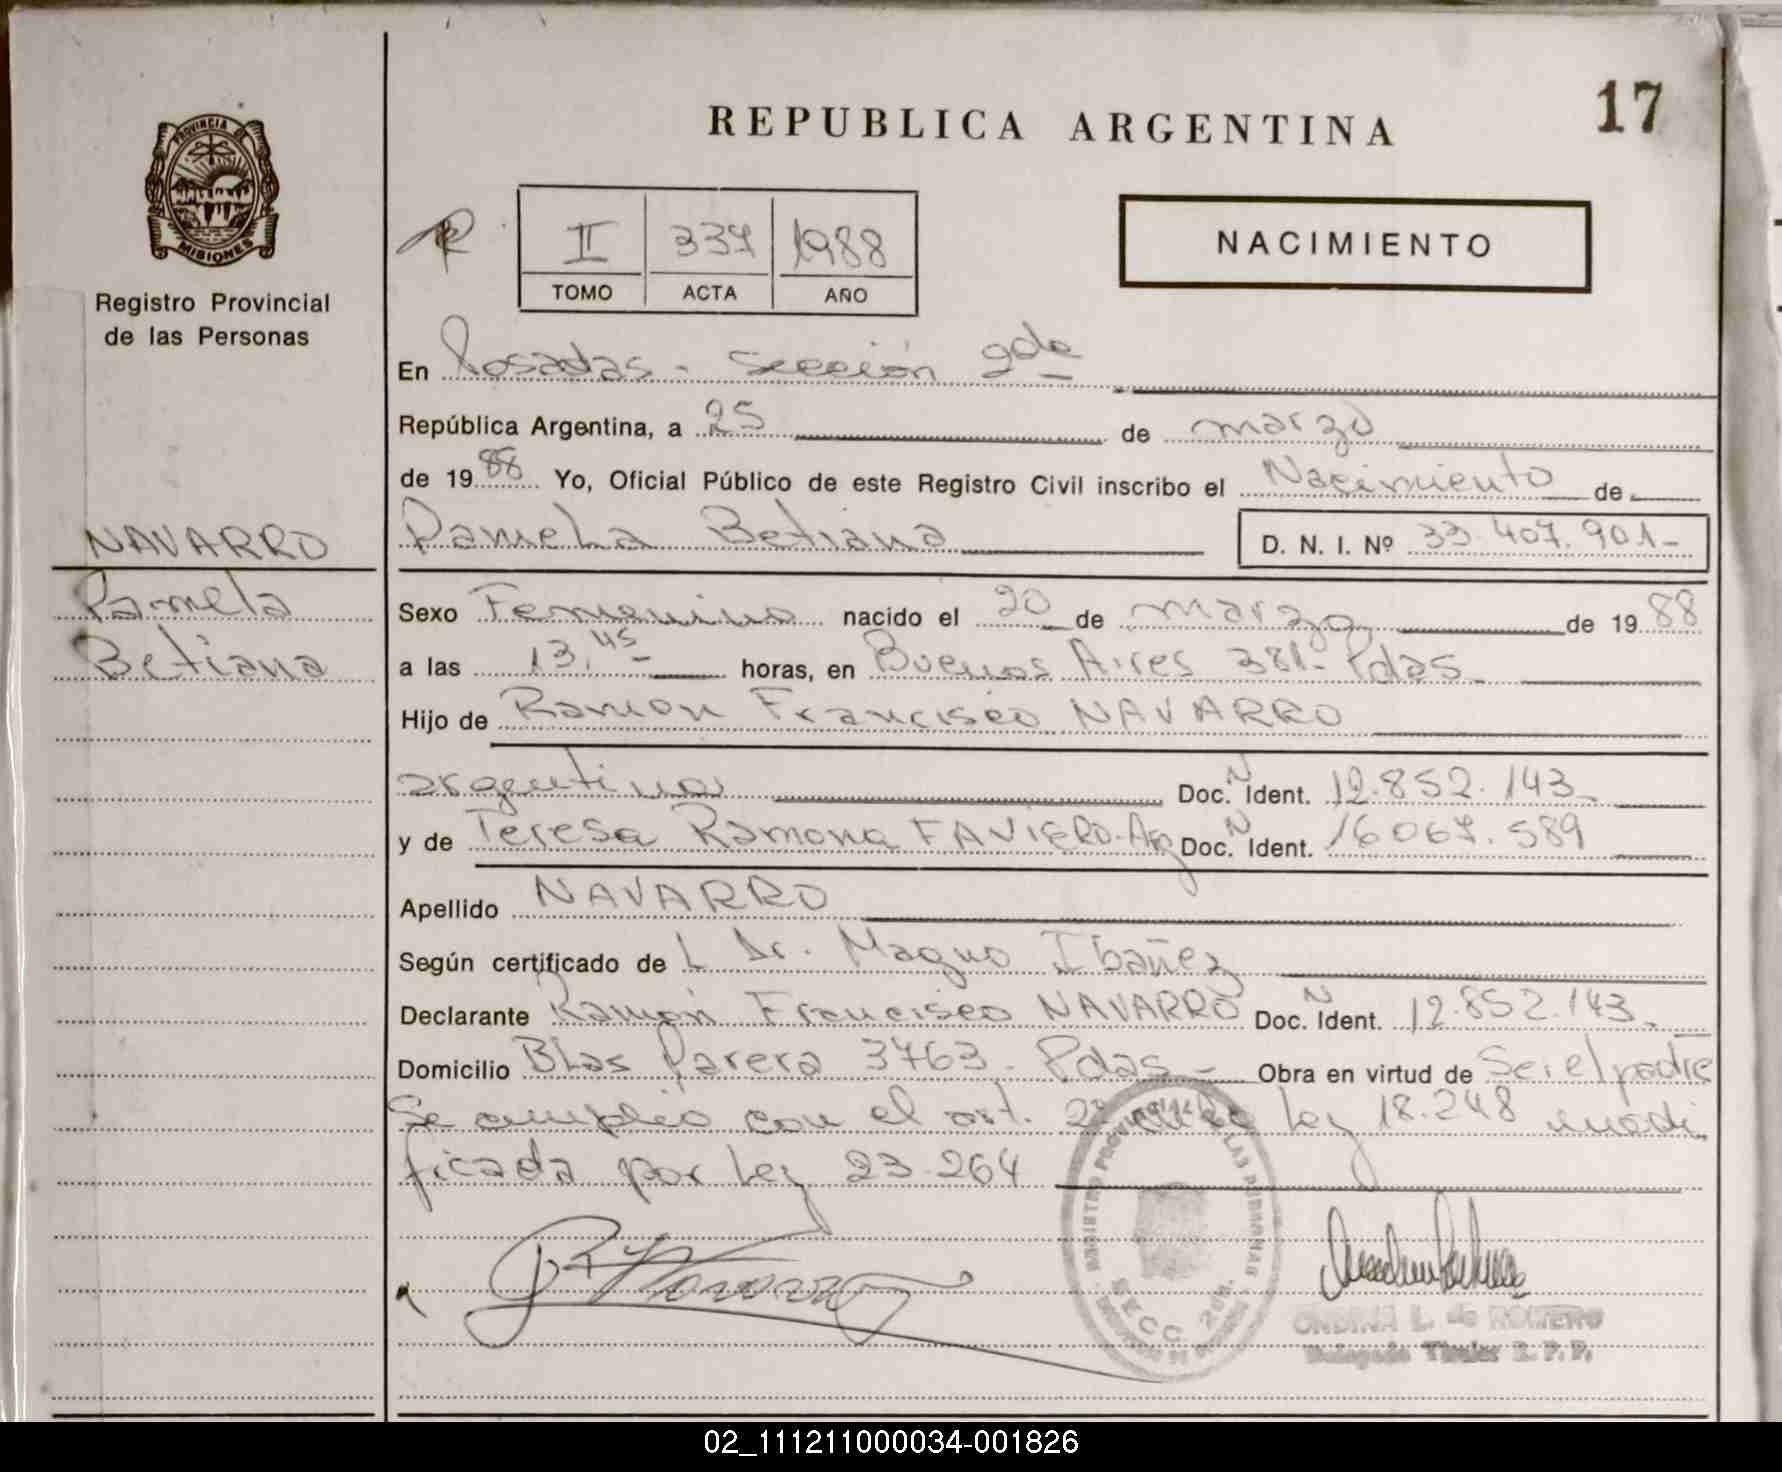 17
REPUBLICA ARGENTINA
PROVINCIA DE
MISIONES
Registro Provincial
de las Personas
NACIMIENTO
II 337 1988
TOMO ACTA AÑO
En Posadas - Sección 2da
República Argentina, a 25 de marzo
de 1988 Yo, Oficial Público de este Registro Civil inscribo el Nacimiento de
NAVARRO
Pamela
Betiana
Pamela Betiana D. N. I. Nº 33.407.901-
Sexo Femenino nacido el 20 de marzo de 1988
a las 13,45 horas, en Buenos Aires 381- Pdas-
Hijo de Ramon Francisco NAVARRO
argentinos Doc. N Ident. 12.852.143-
y de Teresa Ramona FAVIERO-Arg Doc. N Ident. 16067.589
Apellido NAVARRO
Según certificado de L Dr. Magno Ibañez
Declarante Ramón Francisco NAVARRO Doc. N Ident. 12.852.143-
Domicilio Blas Parera 3763- Pdas- Obra en virtud de Ser el padre
Se cumplió con el art. 2º de la Ley 18.248 modi
ficada por Ley 23.264
REGISTRO PROVINCIAL DE LAS PERSONAS
SECC. 2da.
ONDINA L. de ROMERO
Delegada Titular R. P. P.
02_111211000034-001826